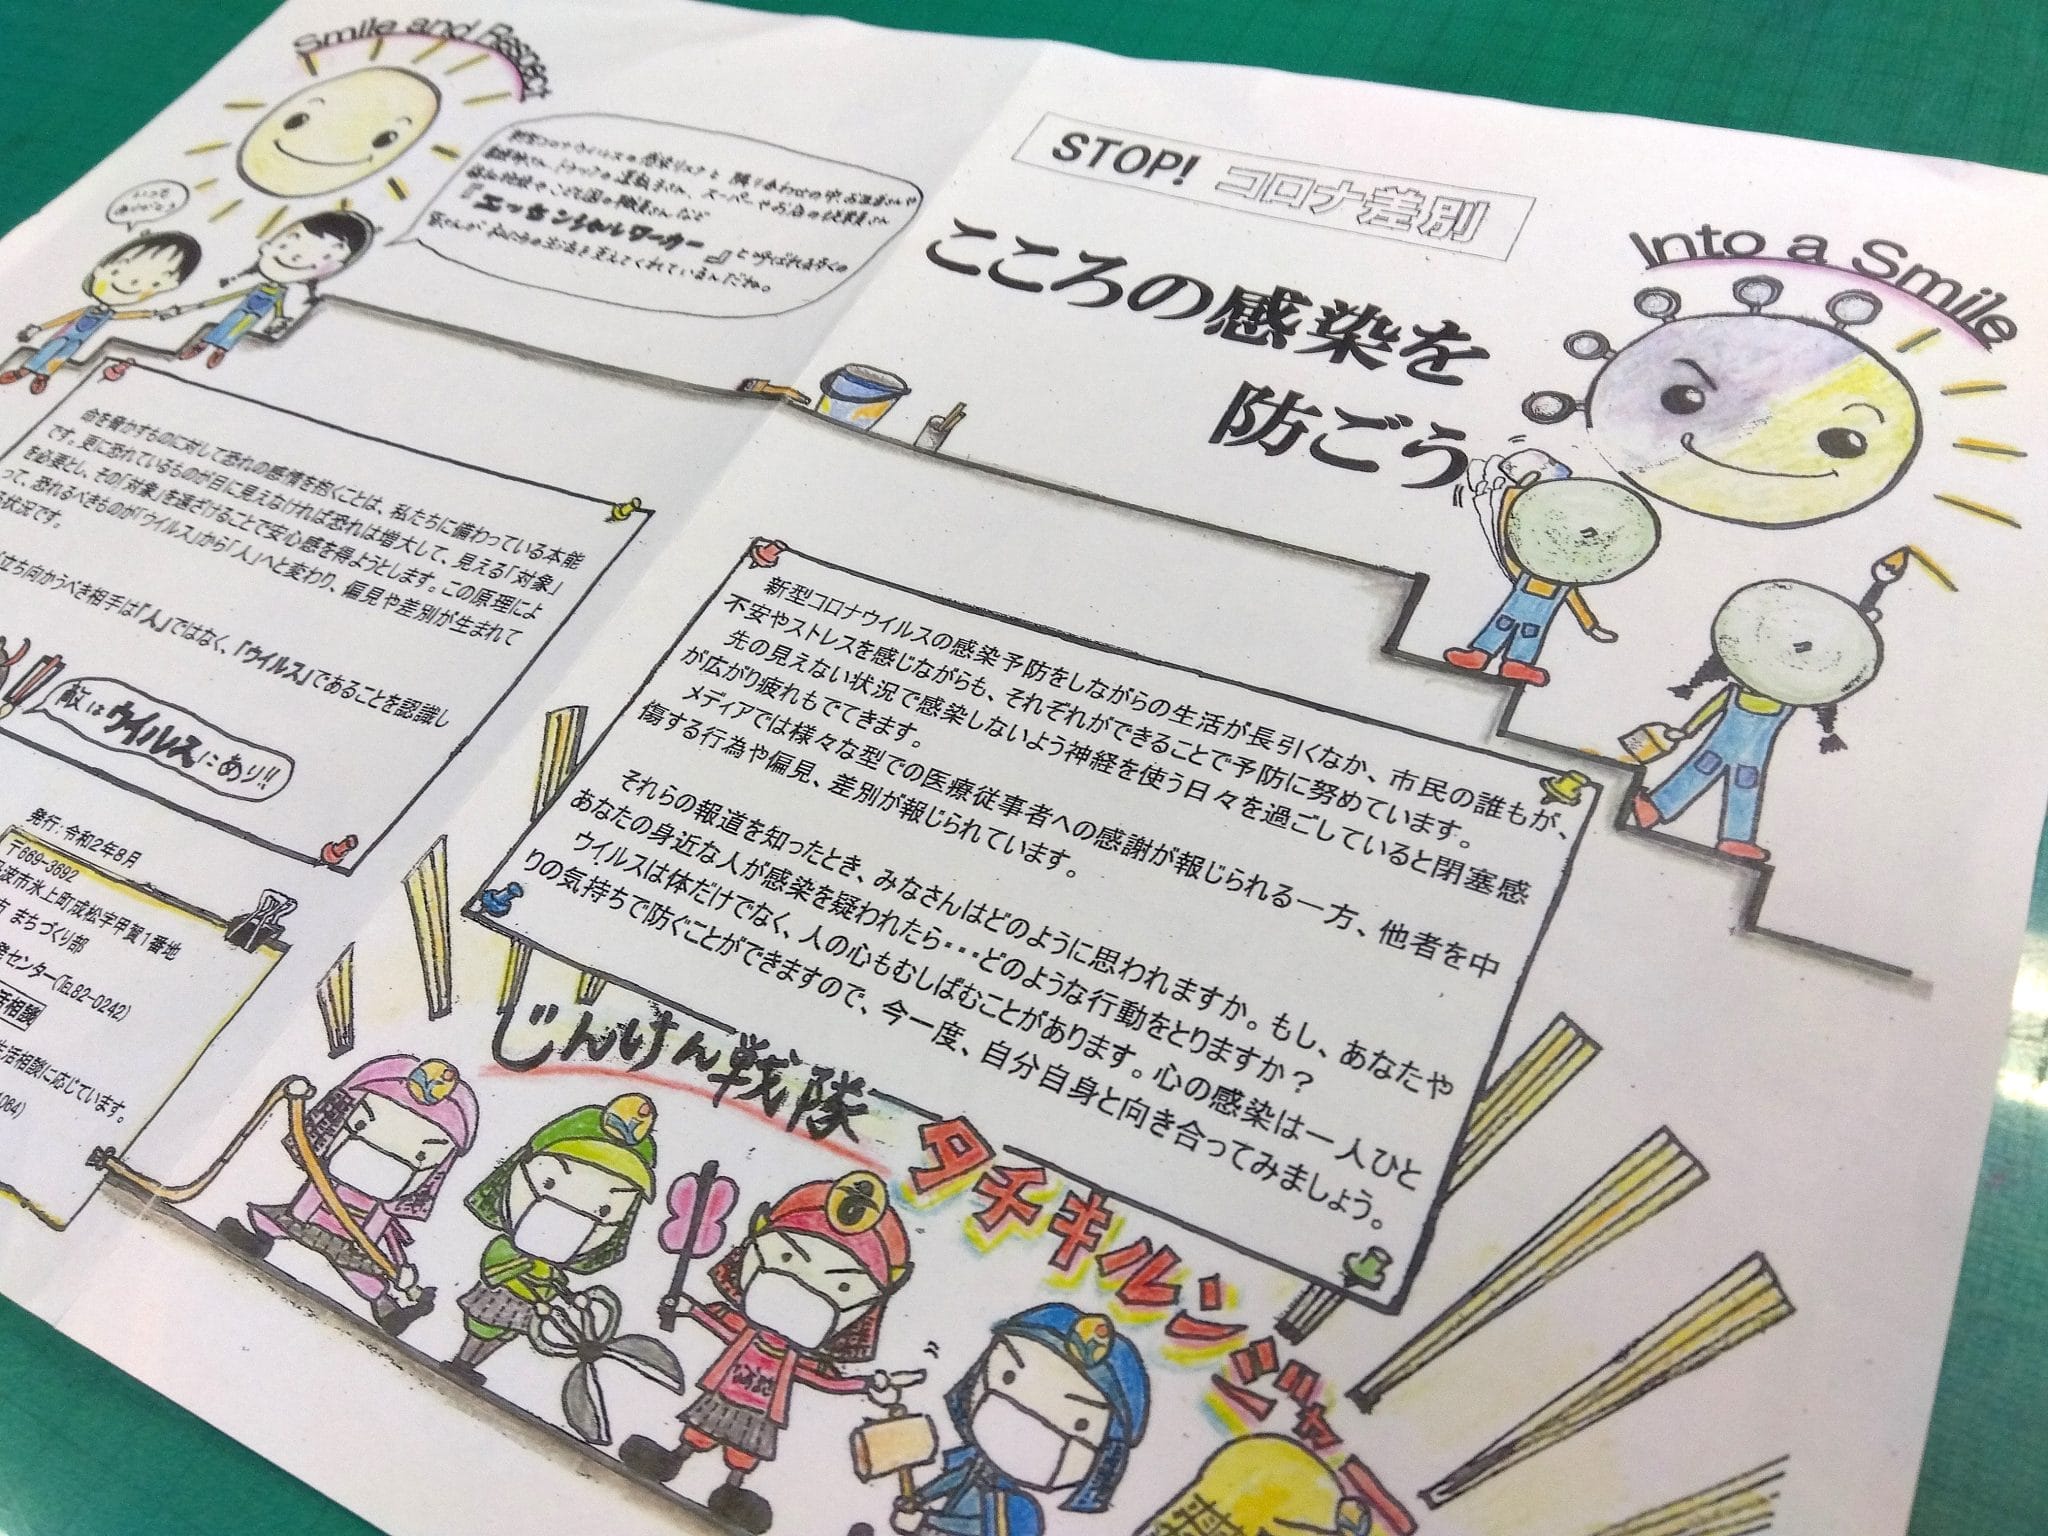 Smile and Respect
いつも
ありがとう
新型コロナウイルスの感染リスクと隣りあわせの中、お医者さんや
看護師さん、トラックの運転手さん、スーパーやお店の従業員さん
福祉施設やこども園の職員さんなど
『エッセンシャルワーカー』と呼ばれる多くの
皆さんが私たちの生活を支えてくれているんだね。
命を脅かすものに対して恐れの感情を抱くことは、私たちに備わっている本能
です。更に恐れているものが目に見えなければ恐れは増大して、見える「対象」
を必要とし、その「対象」を遠ざけることで安心感を得ようとします。この原理によ
って、恐れるべきものが「ウイルス」から「人」へと変わり、偏見や差別が生まれて
る状況です。
立ち向かうべき相手は「人」ではなく、「ウイルス」であることを認識し
敵はウイルスにあり!!
発行:令和2年8月
〒669-3692
波市氷上町成松字甲賀1番地
市 まちづくり部
発センター(℡82-0242)
活相談
生活相談に応じています。
1064)
STOP! コロナ差別
こころの感染を
防ごう
Into a Smile
新型コロナウイルスの感染予防をしながらの生活が長引くなか、市民の誰もが、
不安やストレスを感じながらも、それぞれができることで予防に努めています。
先の見えない状況で感染しないよう神経を使う日々を過ごしていると閉塞感
が広がり疲れもでてきます。
メディアでは様々な型での医療従事者への感謝が報じられる一方、他者を中
傷する行為や偏見、差別が報じられています。
それらの報道を知ったとき、みなさんはどのように思われますか。もし、あなたや
あなたの身近な人が感染を疑われたら・・・どのような行動をとりますか?
ウイルスは体だけでなく、人の心もむしばむことがあります。心の感染は一人ひと
りの気持ちで防ぐことができますので、今一度、自分自身と向き合ってみましょう。
じんけん戦隊
タチキルンジャー